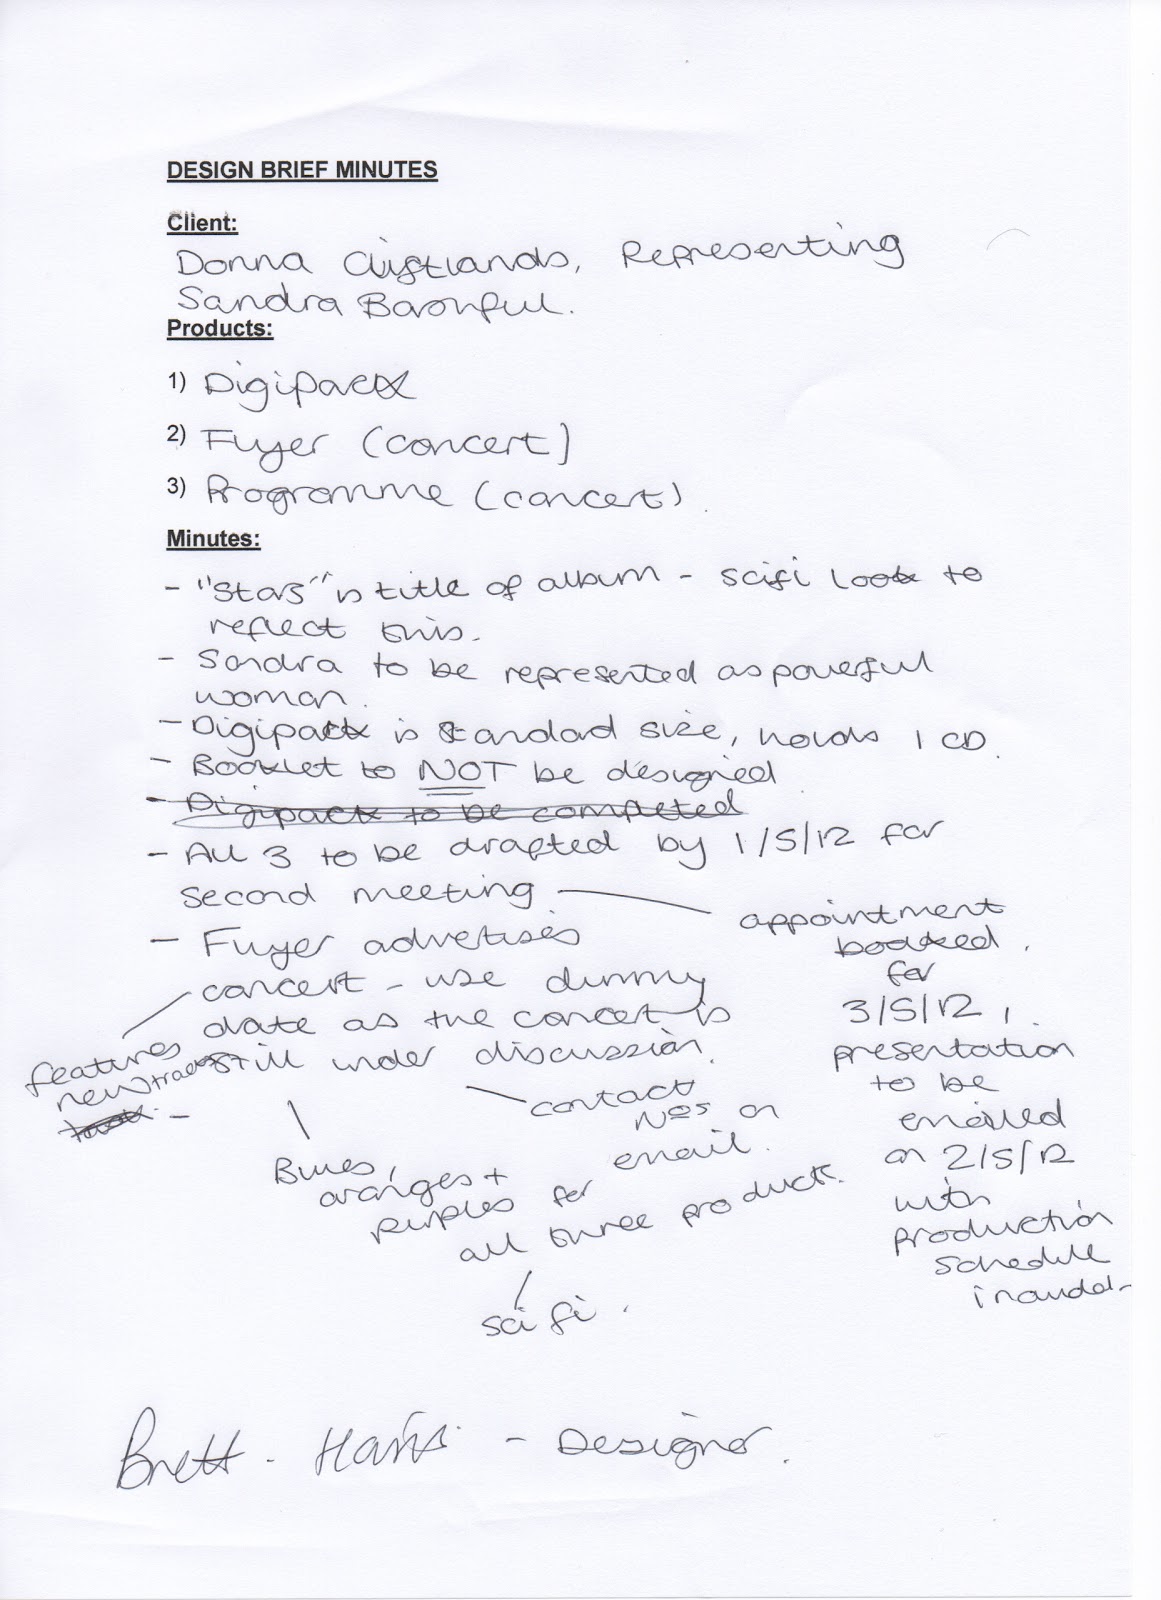 DESIGN BRIEF MINUTES
Client:
Donna Representing
Sandra
Products:
1) Digipack
2) Flyer (concert)
3) Programme (concert).
Minutes:
- "Stars" is title of album - scifi look to
reflect this.
- Sandra to be represented as powerful
woman.
- Digipack is standard size, holds 1 CD.
- Booklet to NOT be designed
- Digipack to be completed
- All 3 to be drafted by 1/5/12 for
second meeting
appointment
booked.
for
3/5/12,
presentation
to be
emailed
on 2/5/12
with
production
schedule
- Flyer advertises
concert - use dummy
date as the concert is
still under discussion.
features
new tracks
-
contact
Nos on
email.
Blues,
oranges +
purples for
all three products.
scifi.
Brett Harris - Designer.